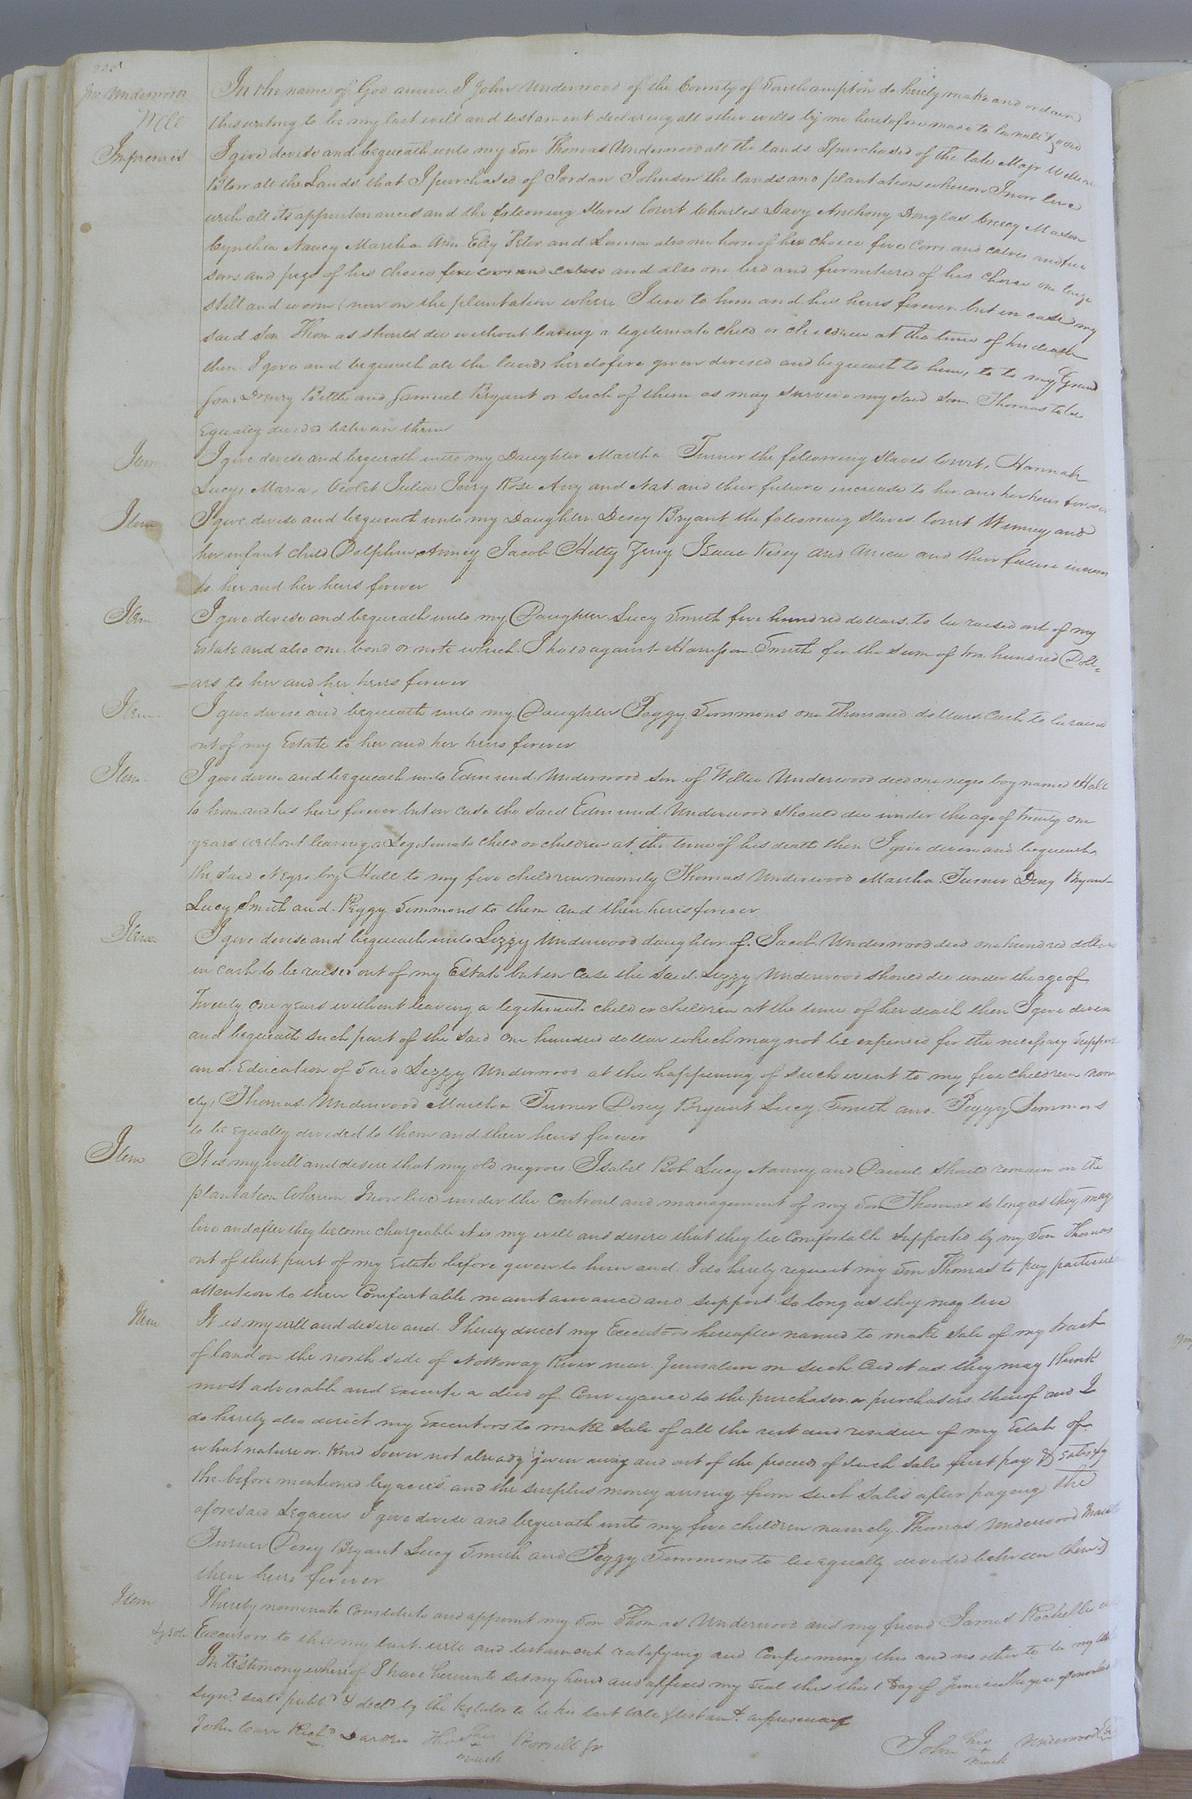 Jno Underwood
Will
In the name of God amen. I John Underwood of the County of Southampton do hereby make and ordain
this writing to be my last will and testament declaring all other wills by me heretofore made to be null & void
Impremis I give devise and bequeath unto my Son Thomas Underwood all the lands I purchased of the late Majr William
Blow all the Lands that I purchased of Jordan Johnson the lands and plantation whereon I now live
with all its appurtenances and the following Slaves towit Charles Davy Anthony Douglas Creasy Mason
Cynthia Nancy Marsha Ann Eliy Peter and Louisa also one horse of his choice five Cows and calves and five
sows and pigs of his choice five cows and calves and also one bed and furniture of his choice one large
still and worm (now on the plantation where I live to him and his heirs forever but in case my
said Son Thomas should die without leaving a legitimate child or children at the time of his death
then I give and bequeath all the lands heretofore given devised and bequeast to him, to to my Grand
Sons Drewry Bittle and Samuel Bryant or such of them as may survive my said Son Thomas to be
Equally divided between them
Item I give devise and bequeath unto my Daughter Martha Turner the following Slaves towit, Hannah
Lucy, Maria, Violet Julia Jerry Rose Amy and Nat and their future increase to her and her heirs forever
Item I give devise and bequeath unto my Daughter Dorcy Bryant the following Slaves towit Winney and
her infant child Dolphin Anney Jacob Hetty Jerry Isaac Kesey and and their future increase
to her and her heirs forever
Item I give devise and bequeath unto my Daughter Lucy Smith five hundred dollars to be raised out of my
Estate and also one bond or note which I hold against Harrison Smith for the sum of two hundred Doll=
=ars to her and her heirs forever
Item I give devise and bequeath unto my Daughter Peggy Simmons one thousand dollars cash to be raised
out of my Estate to her and her heirs forever
Item I give devise and bequeath unto Edmund Underwood son of Willie Underwood decd one negro boy named Hall
to him and his heirs forever but in case the said Edmund Underwood should die under the age of twenty one
years without leaving a Legitimate child or children at the time of his death then I give devise and bequeath
the said Negro boy Hall to my five children namely Thomas Underwood Martha Turner Dorcy Bryant
Lucy Smith and Peggy Simmons to them and their heirs forever
Item I give devise and bequeath unto Lizzy Underwood daughter of Jacob Underwood decd one hundred dollars
in cash to be raised out of my Estate but in case the said Lizzy Underwood should die under the age of
Twenty one years without leaving a legitimate child or children at the time of her death then I give devise
and bequeath such part of the said one hundred dollars which may not be expended for the necessary support
and Education of said Lizzy Underwood at the happening of such event to my five children name
ely, Thomas Underwood Martha Turner Dorcy Bryant Lucy Smith and Peggy Simmons
to be equally divided to them and their heirs forever
Item It is my will and desire that my old negroes Isabel Bob Lucy Nanny and Daniel should remain on the
plantation Whereon I now live under the Controul and management of my Son Thomas so long as they may
live and after they become chargeable it is my will and desire that they be Comfortable supported by my Son Thomas
out of that part of my Estate before given to him and I do hereby request my Son Thomas to pay particular
attention to their Comfortable maintainance and support so long as they may live
Item It is my will and desire and I hereby direct my Executors hereafter named to make sale of my tract
of land on the north side of Nottoway River near Jerusalem on such Credit as they may think
most adviseable and execute a deed of Conveyance to the purchaser or purchasers thereof and I
do hereby also direct my Executors to make sale of all the rest and residue of my Estate of
what nature or Kind soever not already given away and out of the proceeds of such sales first pay & satisfy
the before mentioned legacies and the surplus money arising from such Sales after paying the
aforesaid Legacies I give devise and bequeath unto my five children namely Thomas Underwood Martha
Turner Dorcy Bryant Lucy Smith and Peggy Simmons to be equally divided between them &
their heirs forever
Item I hereby nominate Constitute and appoint my Son Thomas Underwood and my friend James Rochelle
Executors to this my last will and testament ratifying and confirming this and no other to be my
In testimony whereof I have hereunto set my hand and affixed my seal this first day of June in the year
Signd seald publd & decld by the testator to be his last will & testamt. in presence of
John Carr Richd Darden his mark Rowell Jr
John his mark Underwood